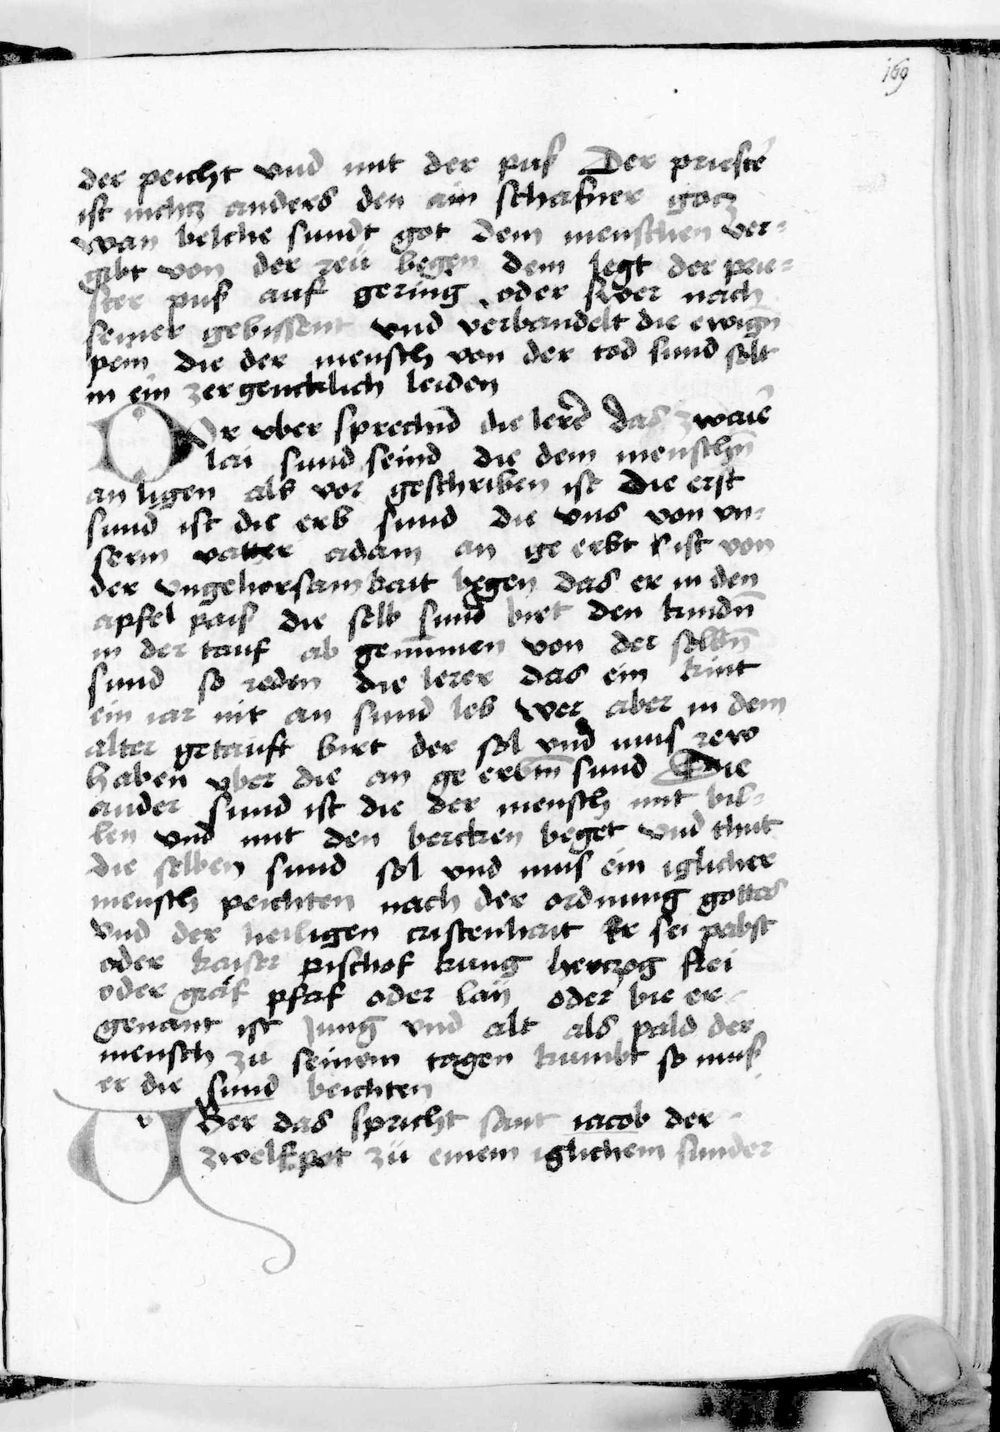 169
der peicht vnd mit der pus Der priestē
ist nichtz anders den ain schafner gocz
wan belche sundt got dem menschen ver-
gibt von der reu begen dem legt der prie-
ster pus auf gering oder swer nach
seiner gebissent vnd verbandelt die ewign̄
pein die der mensch von der tod sund solt
in ein zergencklich leiden
Dar vber sprechn̄d die lerē das zwaiē
lai sund seind die dem menschn̄
an ligen als vor geschriben ist Die erst
sund ist die erb sund die vns von vn-
serm vatter adam an ge erbt ist von
der vngehorsamkait begen das er in den
apfel pais die selb sund birt den kindn̄
in der tauf ab genūmen von der selbn̄
sund so reden die lerer das ein kint
ein iar nit an sund leb wer aber in dem
alter getauft birt der sol vnd mus rew
haben vber die an ge erbtn̄ sund Die
ander sund ist die der mensch mit bil-
len vnd mit den bercken beget vnd thut
die selben sund sol vnd mus ein iglicher
mensch peichten nach der ordnung gottes
vnd der heiligen cristenhait Er sei pabst
oder kaiser pischof kung herczog frei
oder graf pfaf oder laÿ oder bie er
genant ist Jung vnd alt als pald der
mensch zu seinem tagen kumbt so mus
er die sund beichten
VBer das spricht sant iacob der
zwelfpot zu einem iglichem sunder